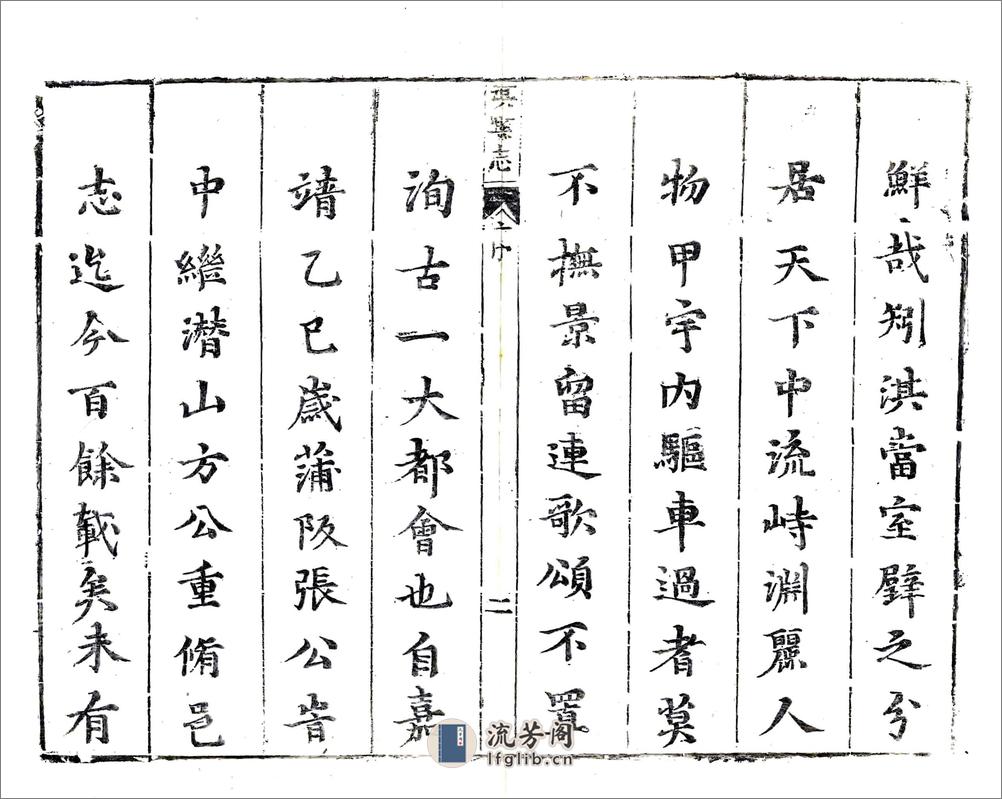 鮮哉矧淇當室壁之分
居天下中流峙淵麗人
物甲宇内驅車過者莫
不撫景留連歌頌不置
淇縣志 序 二
洵古一大都會也自嘉
靖乙巳歲蒲阪張公旹
中繼潛山方公重脩邑
志迄今百餘載矣未有
流芳阁
lfglib.cn